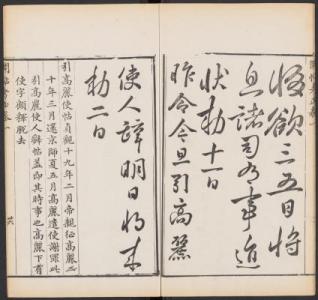 欲三五日將
息諸司事進
狀勅十一日
昨令今旦引高麗
使人辭明日將來
勅二日
引高麗使帖貞觀十九年二月帝親征高麗二
十年三月還京師夏五月高麗遣使謝罪此
引高麗使人辭葢卽其時事也高麗下有
使字顧釋脫去